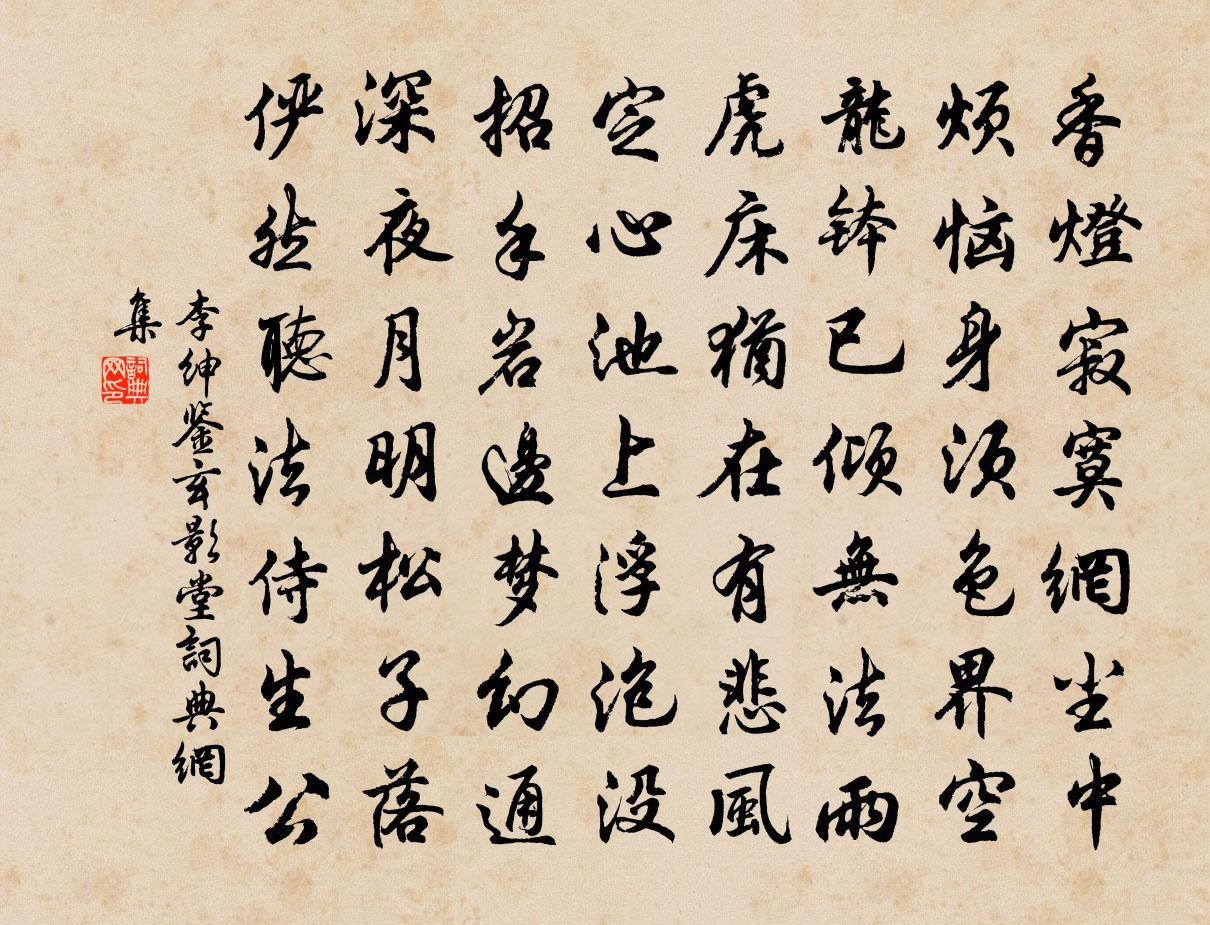 香燈寂寞網尘中
煩恼身須色界空
龍钵已傾無法雨
虎床猶在有悲風
定心池上浮泡没
招手岩邊梦幻通
深夜月明松子落
俨然聽法侍生公
李绅鉴玄影堂詞典網
集
詞典
网印